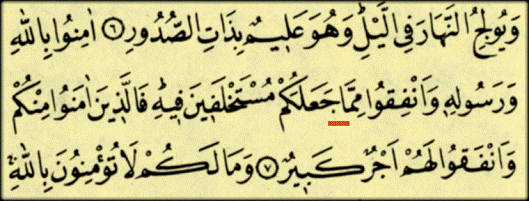 وَيُولِجُ النَّهَارَ فِي الَّيْلِ وَهُوَ عَلِيمٌ بِذَاتِ الصُّدُورِ ۝٦ اٰمِنُوا بِاللّٰهِ
وَرَسُولِهٖ وَاَنْفِقُوا مِمَّا جَعَلَكُمْ مُسْتَخْلَفٖينَ فٖيهِ فَالَّذٖينَ اٰمَنُوا مِنْكُمْ
وَاَنْفَقُوا لَهُمْ اَجْرٌ كَبٖيرٌ ۝٧ وَمَا لَكُمْ لَا تُؤْمِنُونَ بِاللّٰهِ